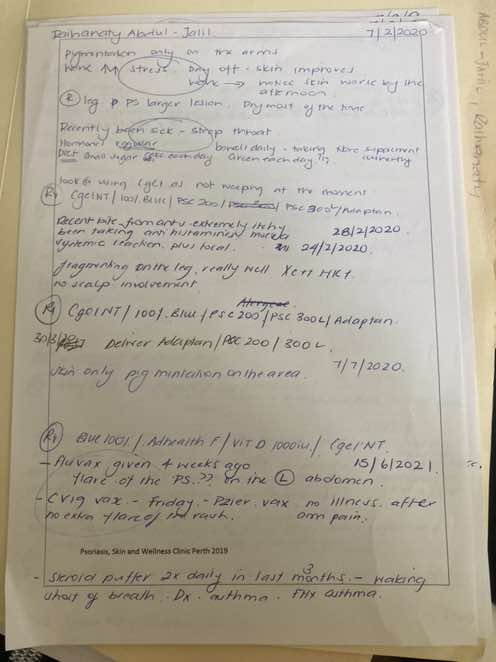 Raihanaty Abdul-Jalil 7/2/2020
Pigmentation only on the arms
Work ↑↑ Stress. Day off - skin improves
work → notice skin worse by the afternoon
(R) leg PS larger lesion. Dry most of the time
Recently been sick - strep throat
Hormones bowels daily - taking supplement currently
Diet Small sugar each day Green each day ??
look @ using Cgel as not weeping at the moment
Rx Cgel NT / 100% Blue / PSC 200 / PSC 300L / Adaptan
Recent bite from ants - extremely itchy 28/2/2020
been taking anti histamines
systemic reaction plus local. 24/2/2020.
fragmenting on the leg, really well
no scalp involvement
Rx Cgel NT / 100% Blue / PSC 200 / PSC 300L / Adaptan.
30/3/20 Deliver Adaptan / PSC 200 / 300L.
7/7/2020.
skin only pigmintation on the area.
Rx Blue 100% / Adhealth F / Vit D 1000iu / Cgel NT.
- Fluvax given 4 weeks ago 15/6/2021.
flare of the PS. ?? on the (L) abdomen.
- CV19 vax. - Friday. - Pzier. vax no illness after
no extra flare of the rash. arm pain.
Psoriasis, Skin and Wellness Clinic Perth 2019
- Steroid puffer 2x daily in last 3 months. - waking
short of breath. Dx. asthma. FHx asthma.
ABDUL-JALIL, Raihanaty